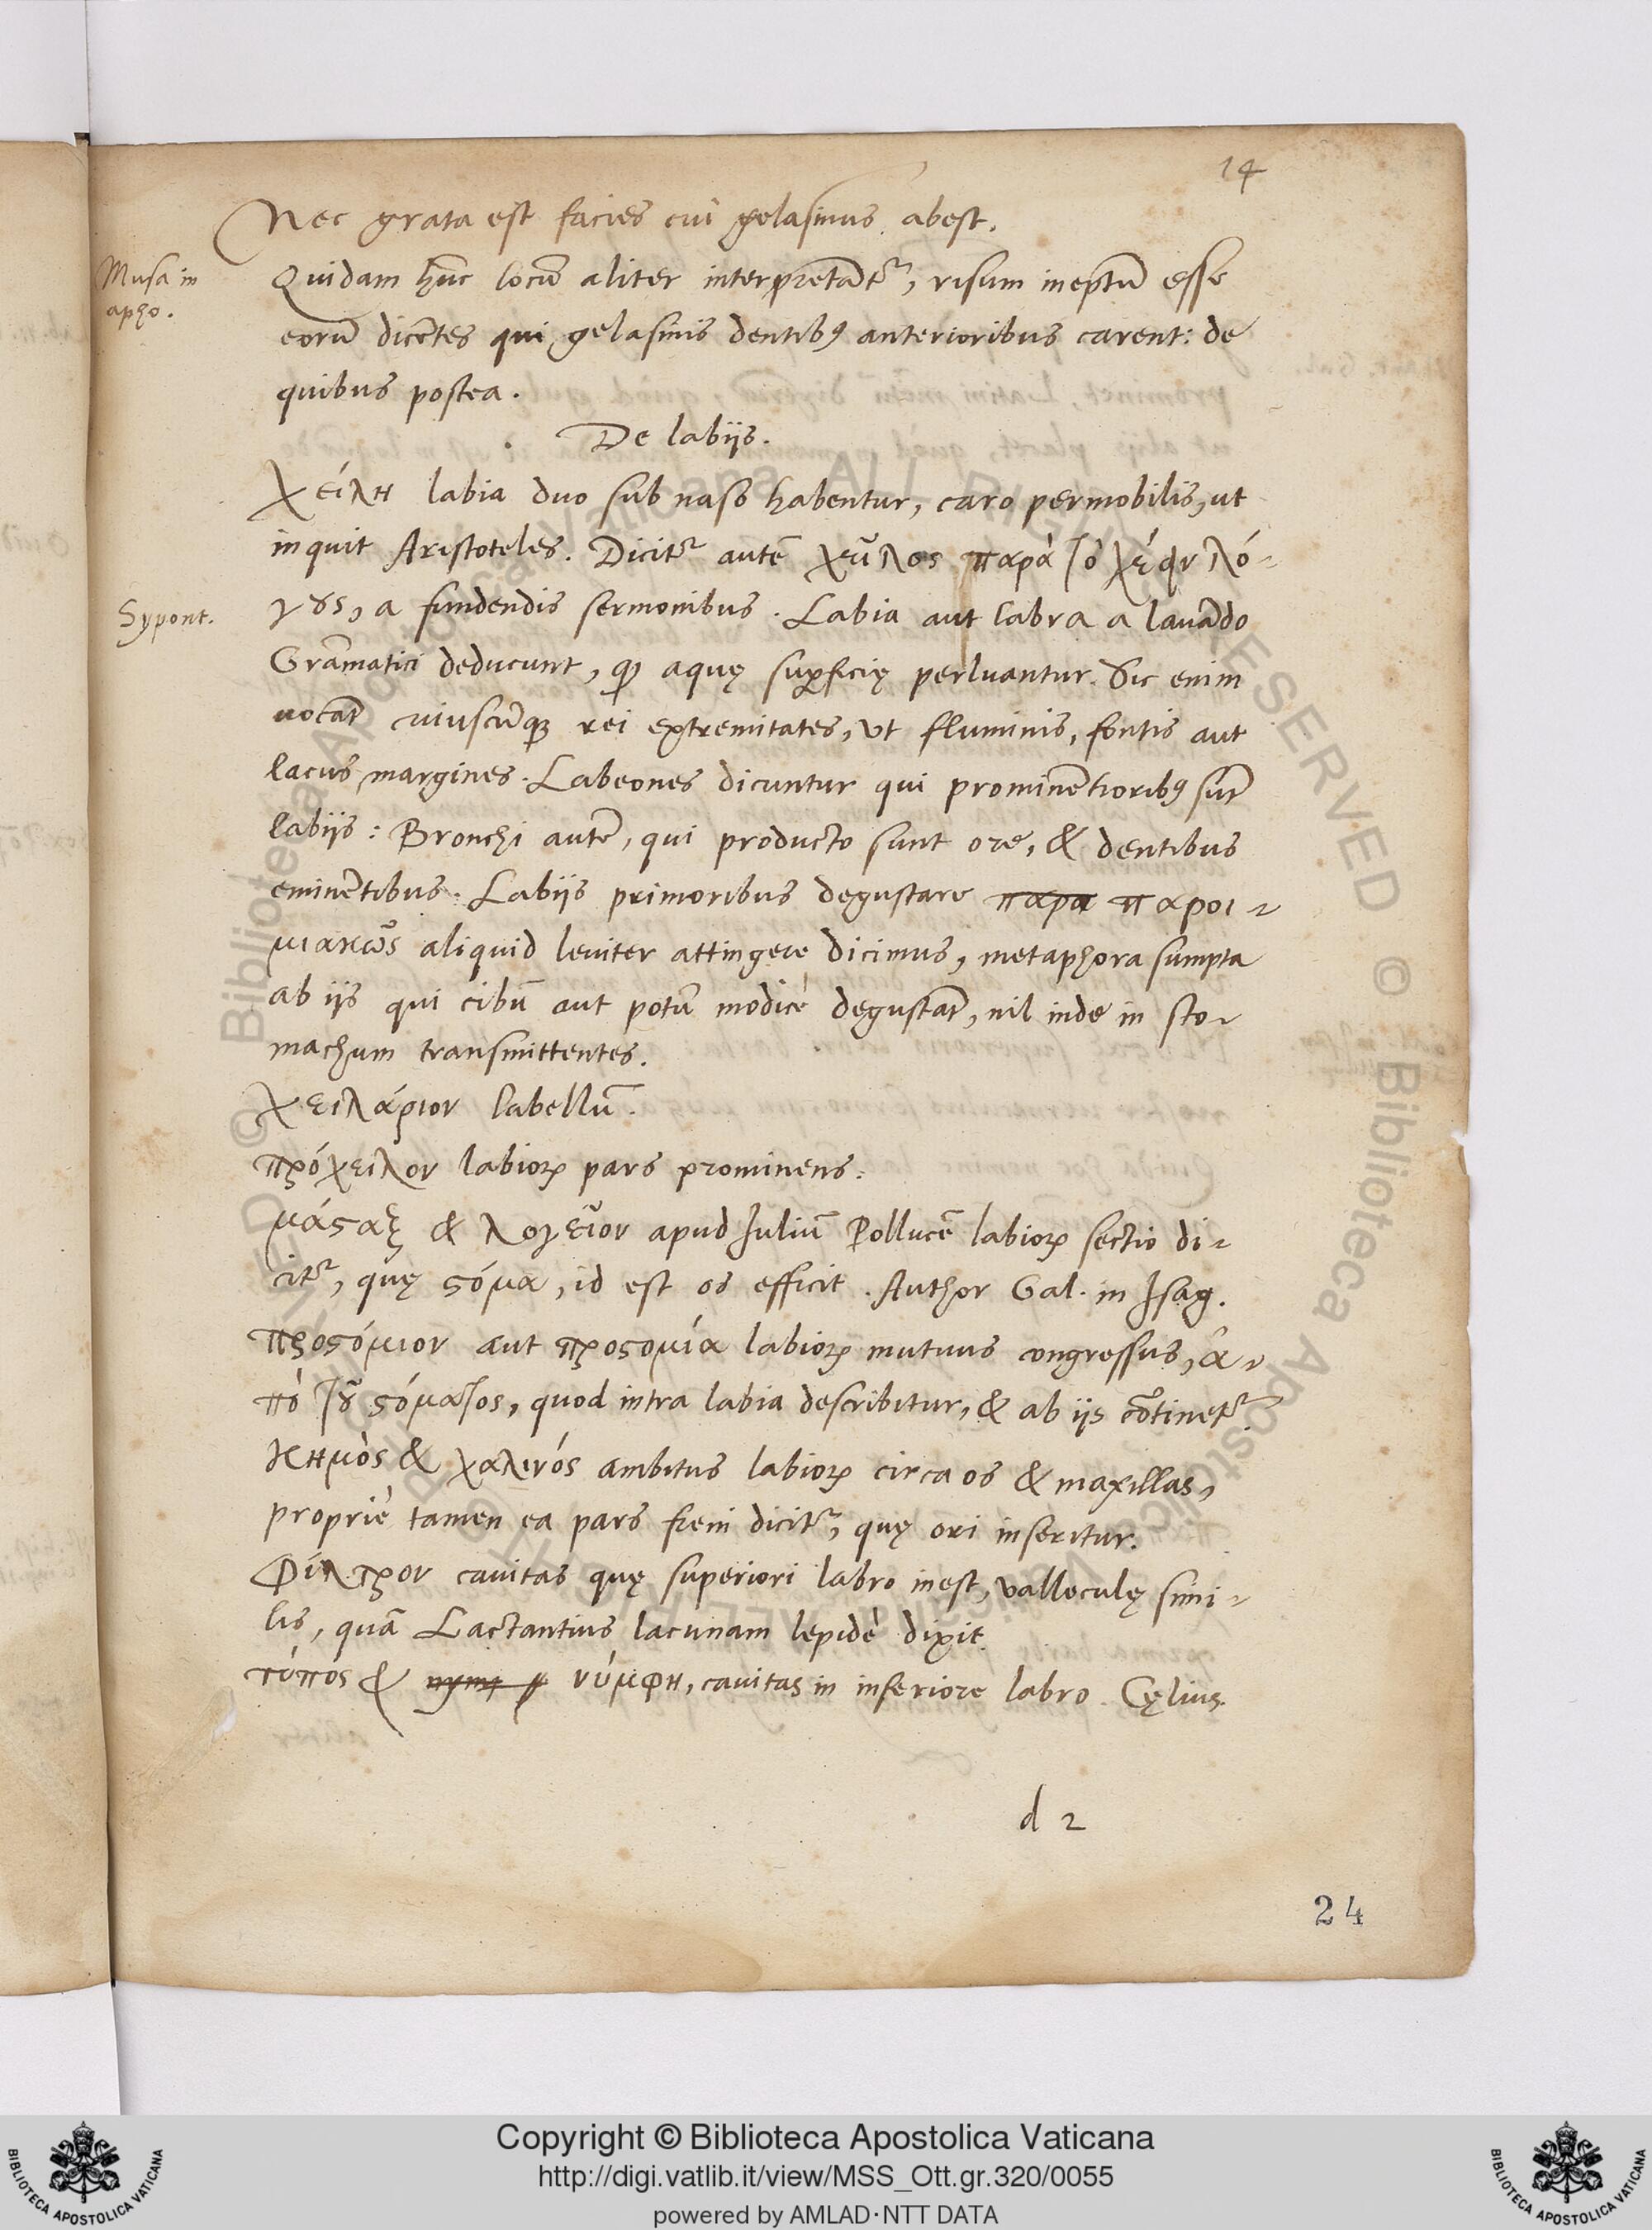 14
Nec grata est facies cui gelasinus abest.
Musa in
apho.
Quidam hūc locū aliter interpretāt^r, risum ineptū esse
eorū dicētes qui gelasinis dentib9 anterioribus carent: de
quibus postea.
De labijs.
χείλη labia duo sub naso habentur, caro permobilis, ut
inquit Aristoteles. Dicit^r autē χεῖλος παρὰ τὸ χέειν λό-
Sypont.
γους, a fundendis sermonibus. Labia aut labra a lauādo
Grāmatici deducunt, qđ aquę suꝑficię perluantur. Sic enim
uocāt cuiuscūqꝫ rei extremitates, vt fluminis, fontis aut
lacus margines. Labeones dicuntur qui prominētiorib9 sūt
labijs: Bronchi autē, qui producto sunt ore, & dentibus
eminētibus. Labijs primoribus degustare παρα παροι-
μιακῶς aliquid leuiter attingere dicimus, metaphora sumpta
ab ijs qui cibū aut potū modicè degustāt, nil inde in sto-
machum transmittentes.
χειλάριον labellū.
πρόχειλον labioꝝ pars prominens.
μάϛαξ & λογεῖον apud Iuliū Pollucē labioꝝ sectio di-
cit^r, quę ϛόμα, id est os efficit. Author Gal. in Isag.
προϛόμιον aut προϛομία labioꝝ mutuus congressus, ἀ-
πὸ τοῦ ϛόματος, quod intra labia describitur, & ab ijs cōtinet^r.
κημὸς & χαλινός ambitus labioꝝ circa os & maxillas,
propriè tamen ea pars freni dicit^r, quę ori inseritur.
Φίλτρον cauitas quę superiori labro inest, valleculę simi-
lis, quā Lactantius lacunam lepidè dixit.
τύπος & νύμφη, cauitas in inferiore labro. Cęlius.
d 2
24
Copyright © Biblioteca Apostolica Vaticana
http://digi.vatlib.it/view/MSS_Ott.gr.320/0055
powered by AMLAD·NTT DATA